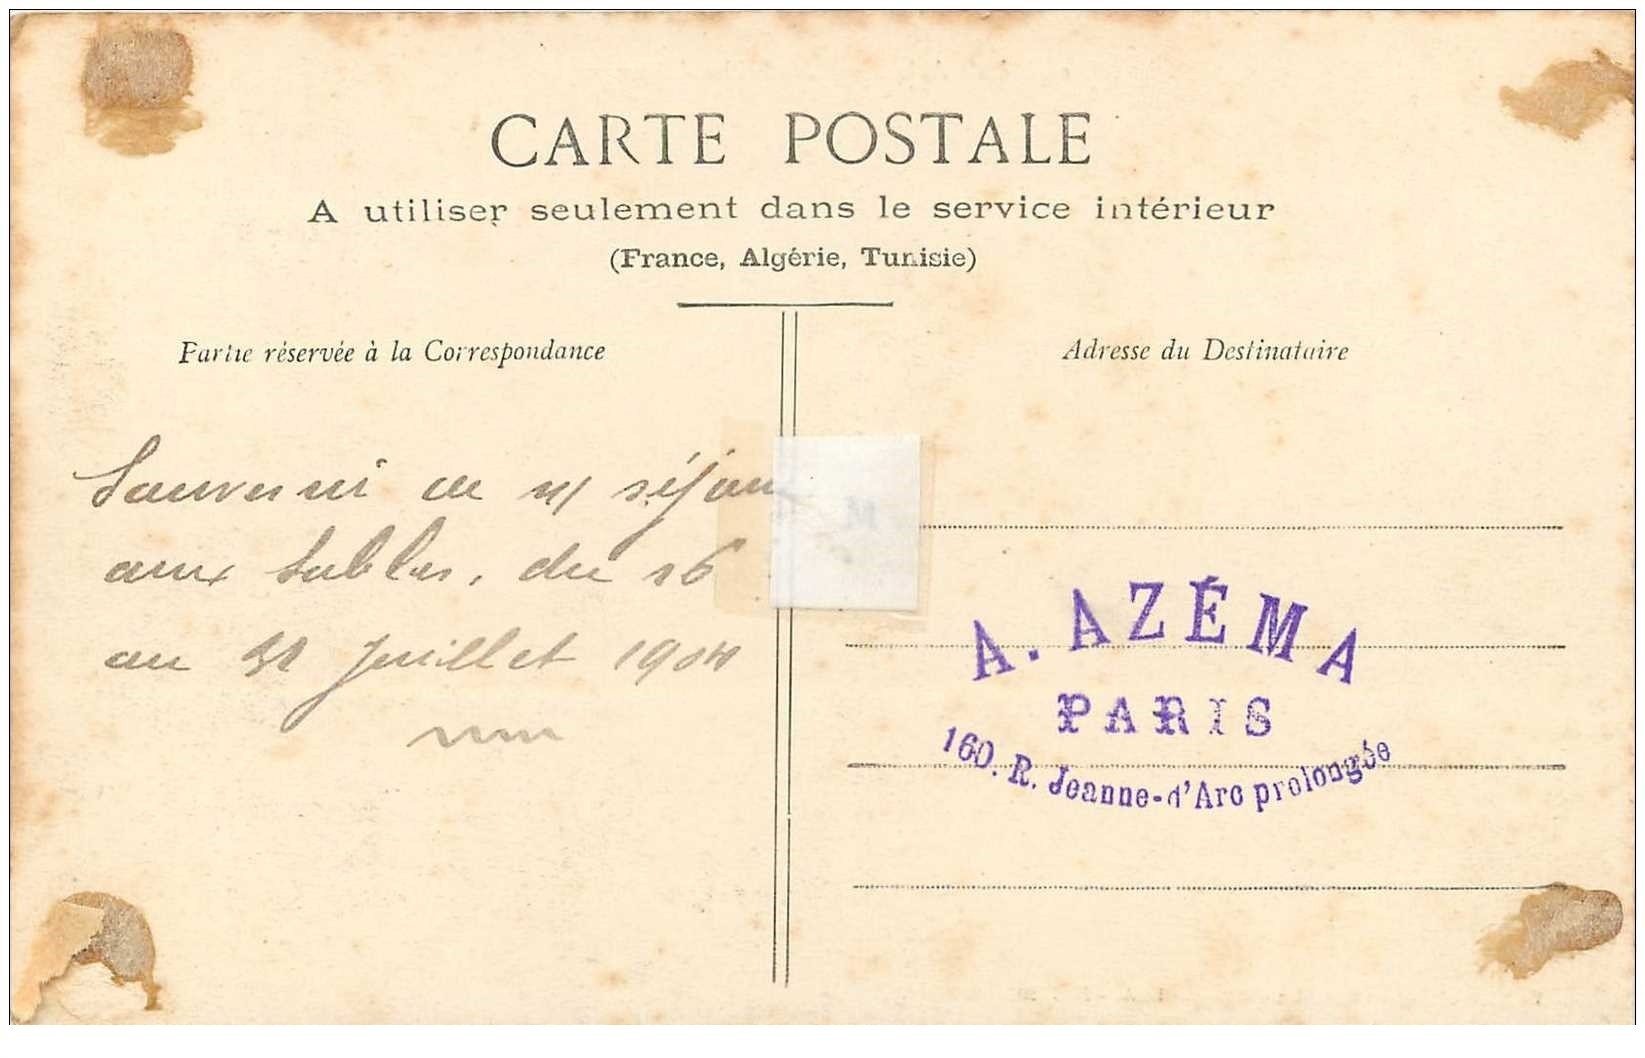 CARTE POSTALE
A utiliser seulement dans le service intérieur
(France, Algérie, Tunisie)
Partie réservée à la Correspondance
Adresse du Destinataire
Souvenir de séjour
aux Sables, du 16
au 31 Juillet 1904
M
A. AZÉMA
PARIS
160. R. Jeanne-d'Arc prolongée